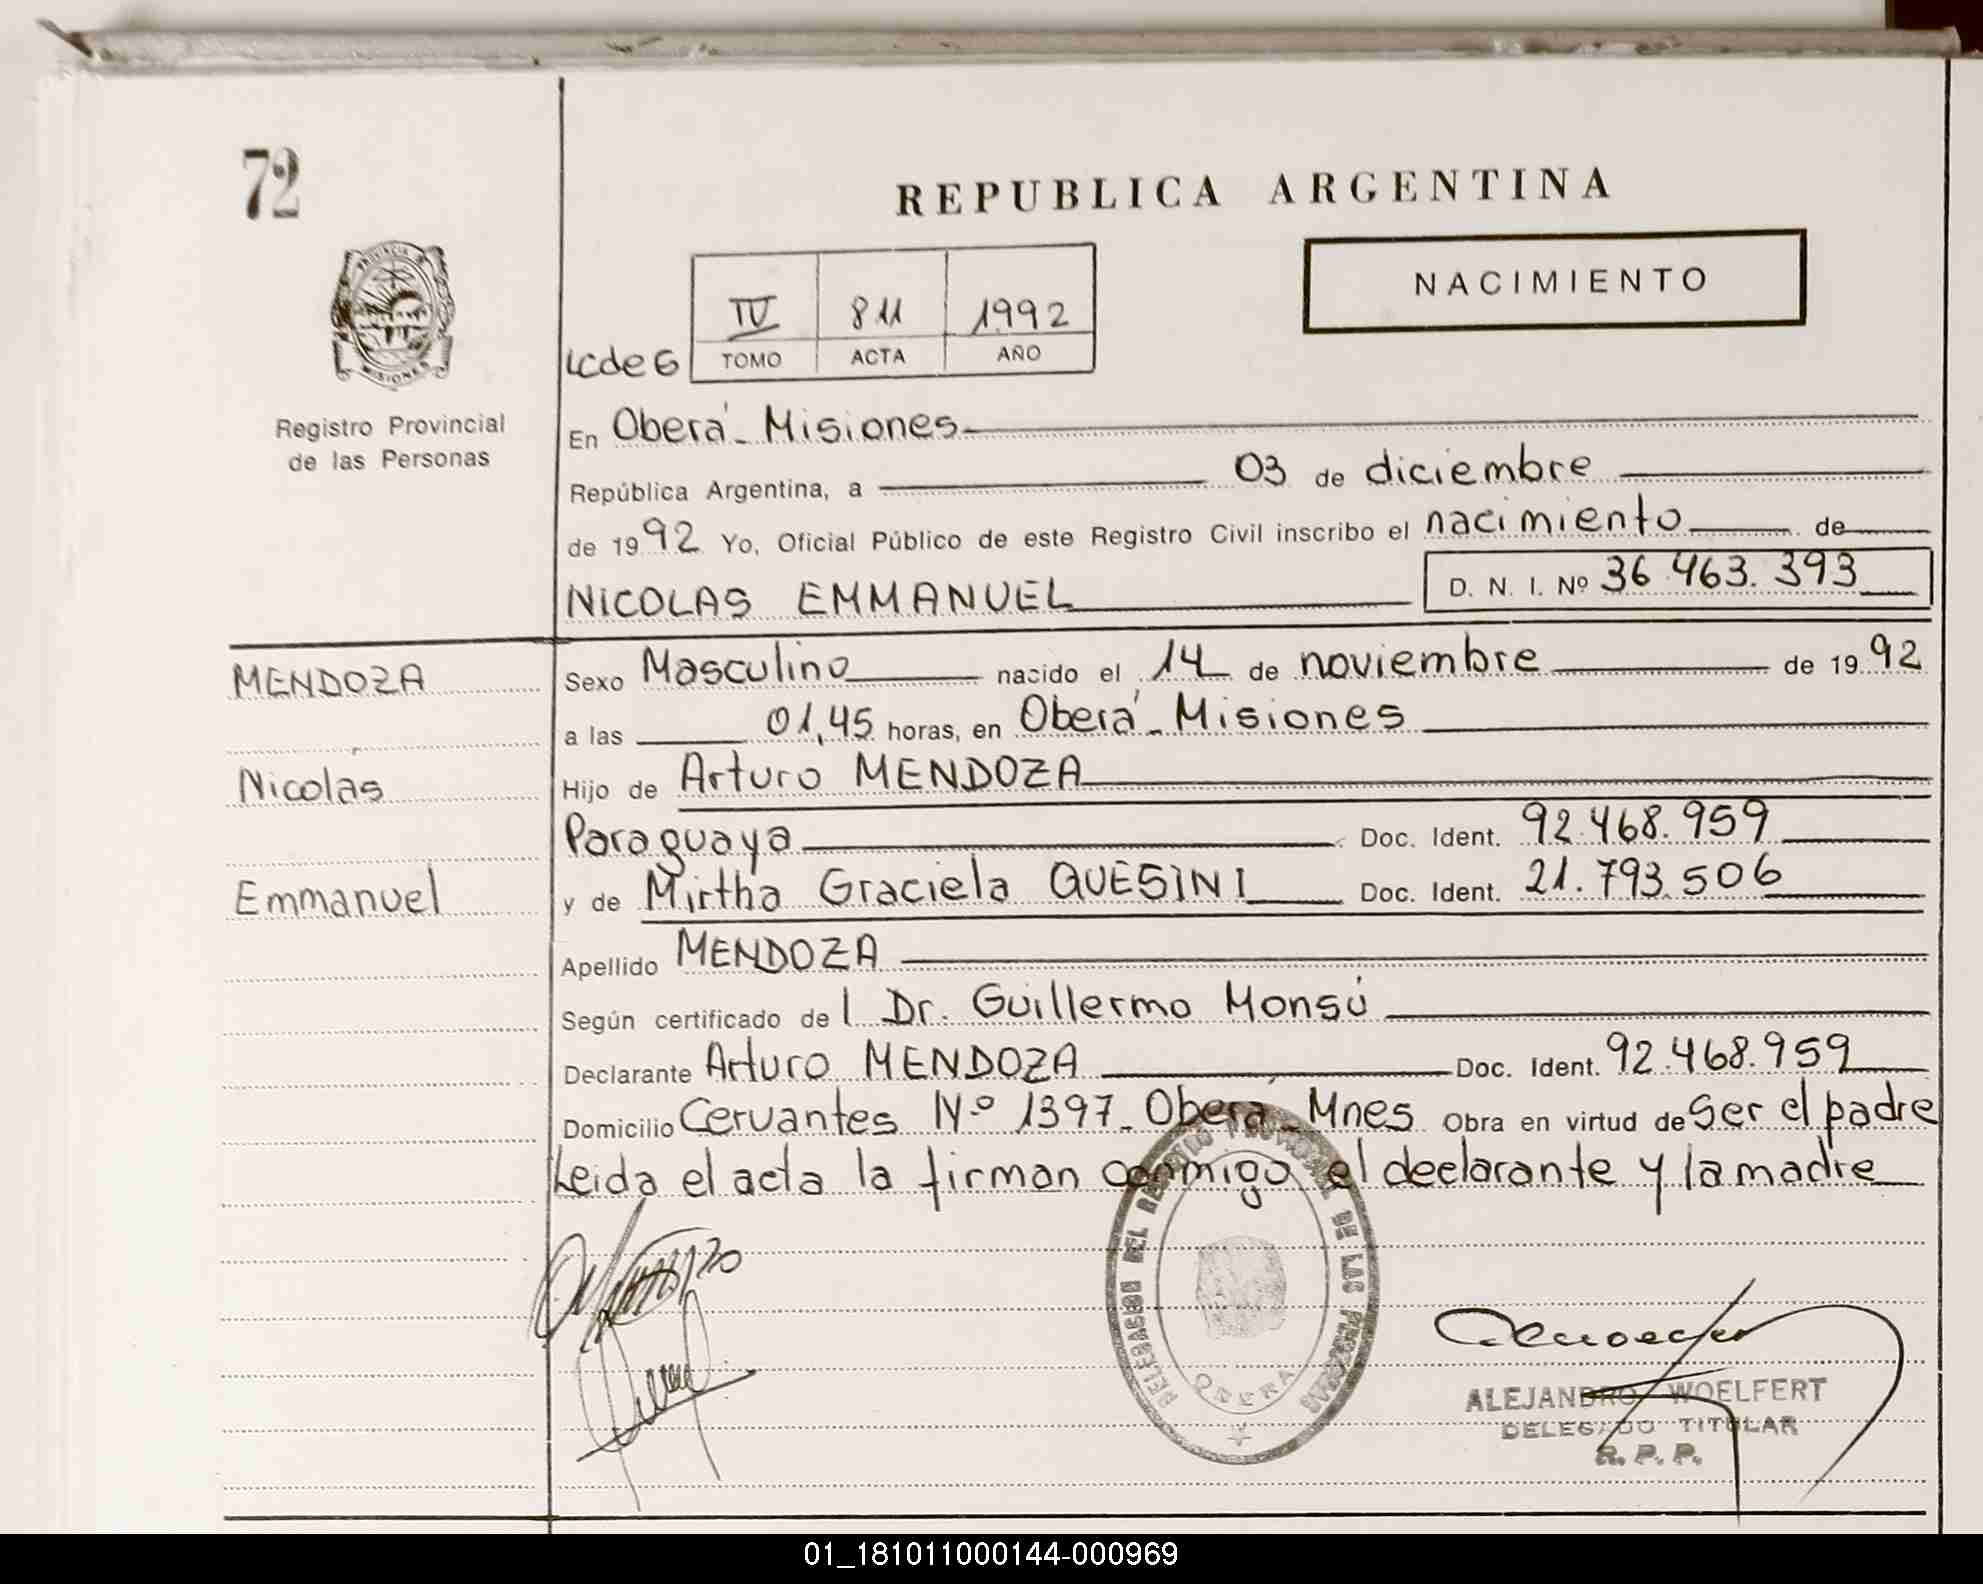 72
REPUBLICA ARGENTINA
NACIMIENTO
PROVINCIA DE
MISIONES
IV 811 1992
Lcde6 TOMO ACTA AÑO
Registro Provincial
de las Personas
En Oberá - Misiones
República Argentina, a 03 de diciembre
de 1992 Yo, Oficial Público de este Registro Civil inscribo el nacimiento de
NICOLAS EMMANUEL D. N. I. Nº 36.463.393
MENDOZA Sexo Masculino nacido el 14 de noviembre de 1992
a las 01,45 horas, en Oberá - Misiones
Nicolás Hijo de Arturo MENDOZA
Paraguaya Doc. Ident. 92.468.959
Emmanuel y de Mirtha Graciela QUESINI Doc. Ident. 21.793.506
Apellido MENDOZA
Según certificado del Dr. Guillermo Monsú
Declarante Arturo MENDOZA Doc. Ident. 92.468.959
Domicilio Cervantes Nº 1397 - Oberá - Mnes Obra en virtud de Ser el padre
Leida el acta la firman conmigo el declarante y la madre
DELEGACION DEL REGISTRO PROVINCIAL DE LAS PERSONAS
OBERA
ALEJANDRO WOELFERT
DELEGADO TITULAR
R. P. P.
01_181011000144-000969